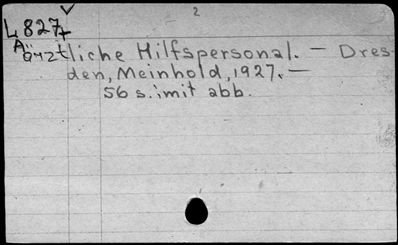 2
L 827+
Aärztliche Hilfspersonal. — Dres
den, Meinhold, 1927. —
56 s. : mit abb.